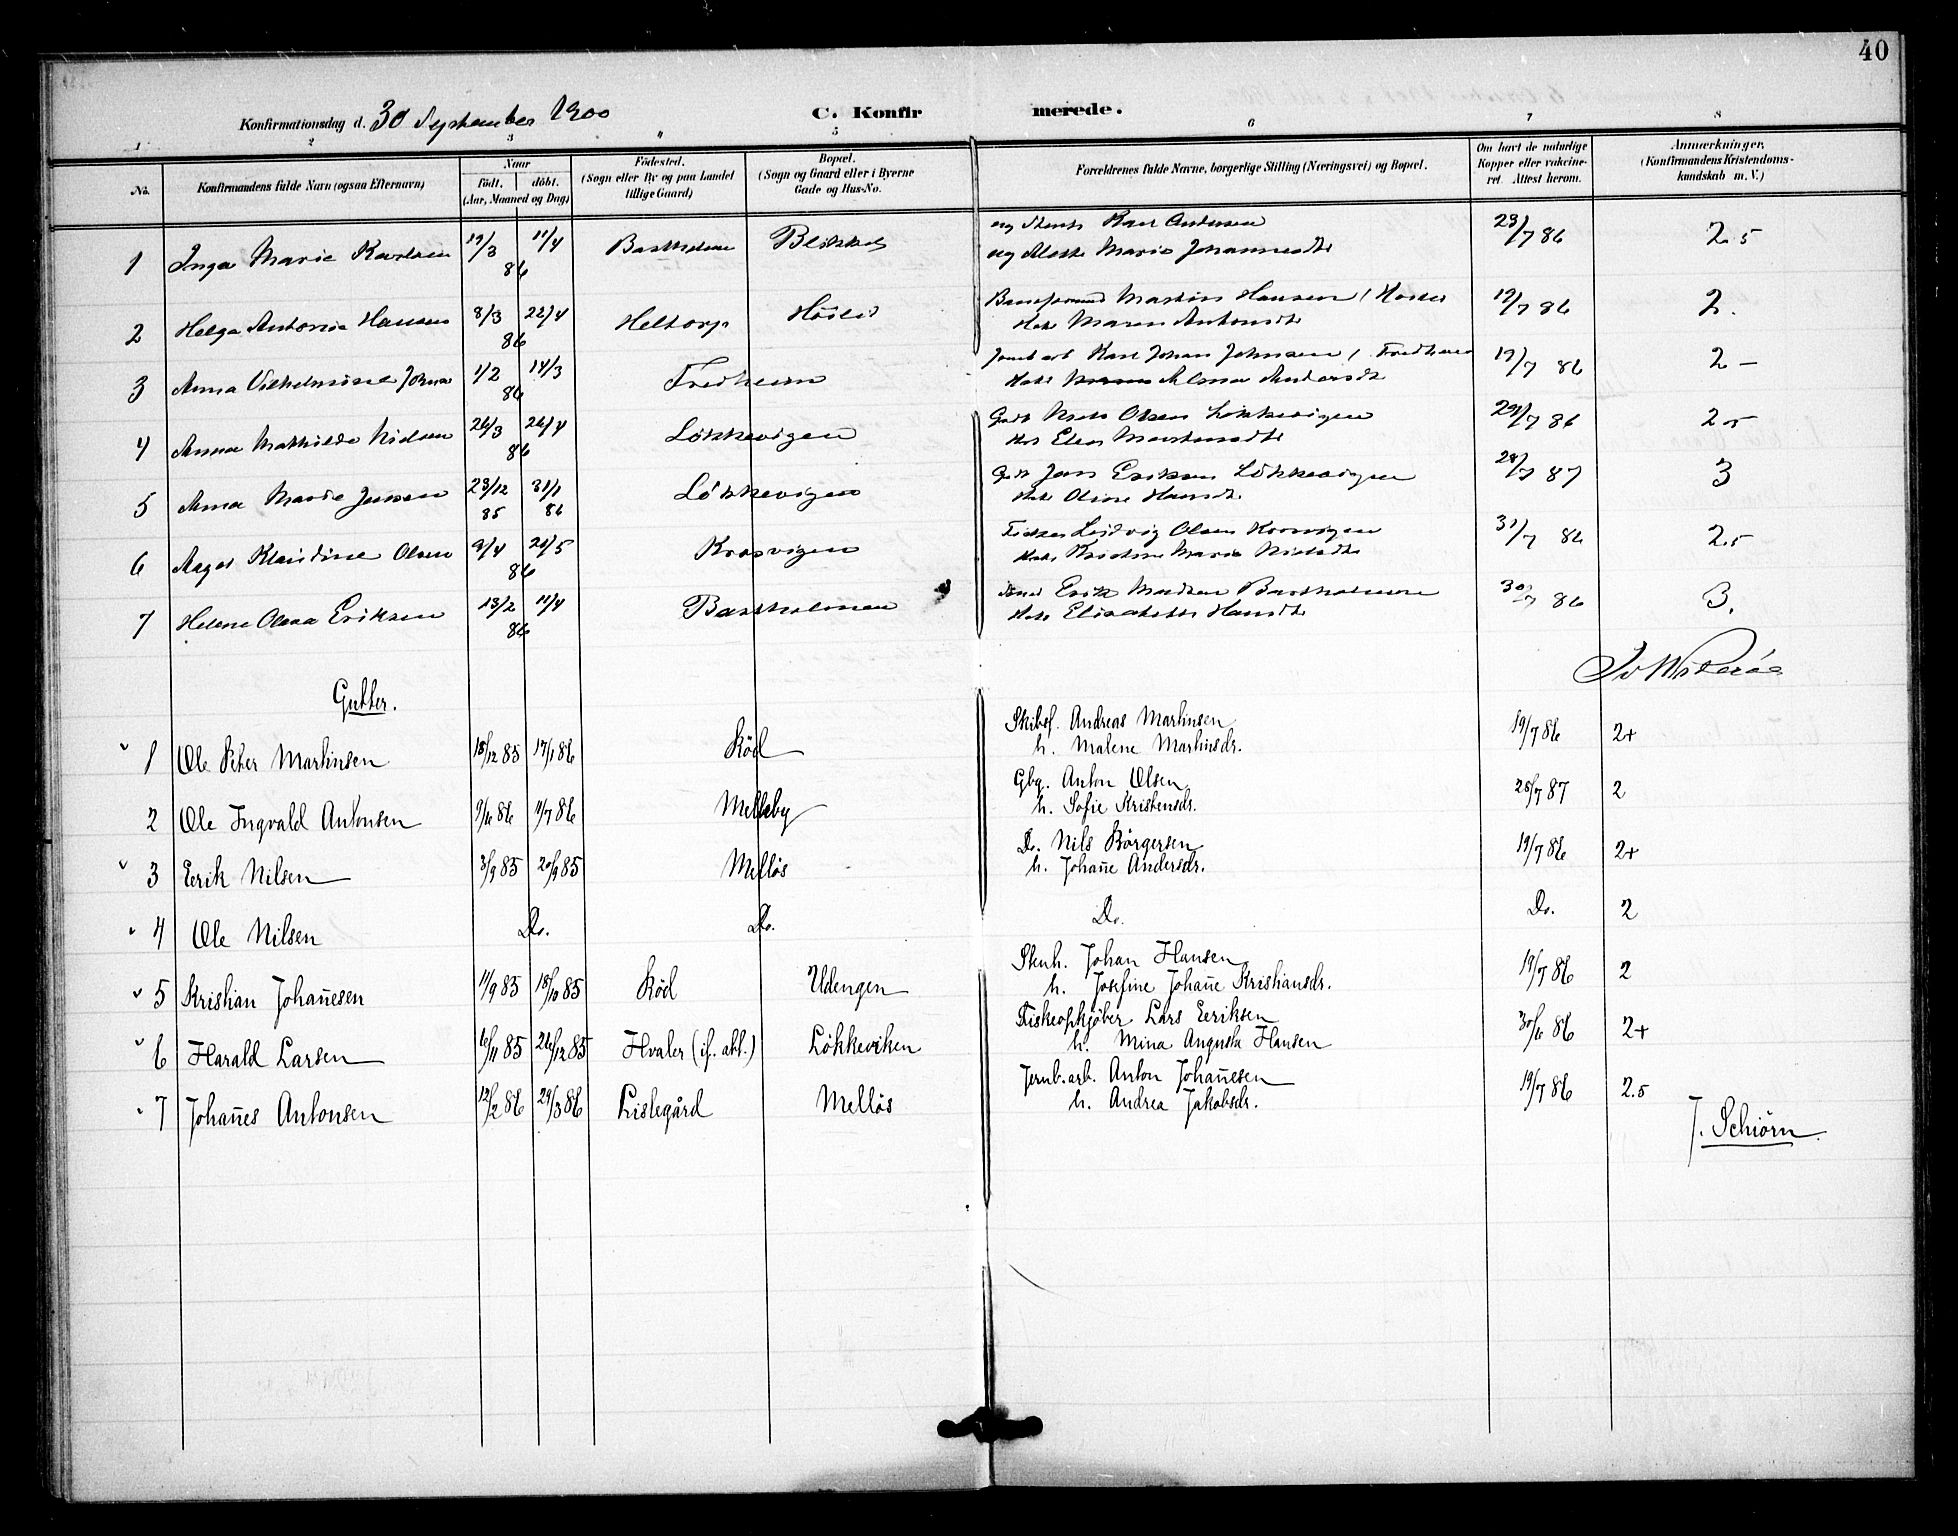 40
Konfirmationsdag d. 30 September 1900 C. Konfirmerede.
1 2 3 4 5 6 7 8
No.
Konfirmandens fulde Navn (ogsaa Efternavn)
Naar
født. døbt.
(Aar, Maaned og Dag)
Fødested.
(Sogn eller By og paa Landet
tillige Gaard)
Bopæl.
(Sogn og Gaard eller i Byerne
Gade og Hus-No.
Forældrenes fulde Navne, borgerlige Stilling (Næringsvei) og Bopæl.
Om havt de naturlige
Kopper eller vakcine-
ret. Attest herom.
Anmærkninger.
(Konfirmandens Kristendoms-
kundskab m. V.)
1 Inga Marie Karlsen 19/3 11/4 86 Bartholmen ug Karl Andersen 23/7 86 2.5
ug Marie Johannesdtr
2 Helga Antonie Hansen 8/3 22/4 86 Heltorp Martin Hansen 19/7 86 2.
Hst Maren Antonsdtr
3 Anna Vilhelmine Johns 1/2 14/3 86 Fredheim Karl Johan Johnsen / Fredheim 19/7 86 2 –
Hst Alma Andersdtr
4 Anna Mathilde Nielsen 26/3 26/4 86 Løkkevigen Niels Olsen Løkkevigen 29/7 86 2.5
Hst Elen Martinsdtr
5 Anna Marie Jensen 23/12 85 31/1 86 Løkkevigen Jens Eriksen Løkkevigen 28/7 87 3
Hst Oline Hansdtr.
6 Aagot Klaudine Olsen 9/4 24/5 86 Korsvigen Fisker Ludvig Olsen Korsvigen 31/7 86 2.5
Hst Kristine Marie Nielsdtr
7 Helene Olava Eriksen 13/2 11/4 86 Bartholmen Erik Madsen Bartholmen 30/7 86 3.
Hst Elisabeth Hansdtr
Gutter.
1 Ole Peter Martinsen 18/12 85 17/1 86 Kød Skibsf. Andreas Martinsen 19/7 86 2+
h. Malene Martinsdr.
2 Ole Ingvald Antonsen 9/6 86 11/7 86 Melleby Gbg. Anton Olsen 28/7 87 2
h. Sofie Kristensdr.
3 Eerik Nilsen 3/9 85 20/9 85 Melløs Do. Nils Børgersen 19/7 86 2+
h. Johañe Andersdr.
4 Ole Nilsen Do. Do. Do. Do. 2
5 Kristian Johañesen 11/9 85 18/10 85 Kød Udengen Stenh. Johan Hansen 19/7 86 2
h. Josefine Johañe Kristiansdr.
6 Harald Larsen 6/11 85 26/12 85 Hvaler (if. att.) Løkkeviken Fiskeopkjøber Lars Eeriksen 30/6 86 2+
h. Mina Augusta Hansen
7 Johañes Antonsen 12/2 86 29/3 86 Lislegård Melløs Jernb.arb. Anton Johañesen 19/7 86 2.5
h. Andrea Jakobsdr.
J. Schiørn.